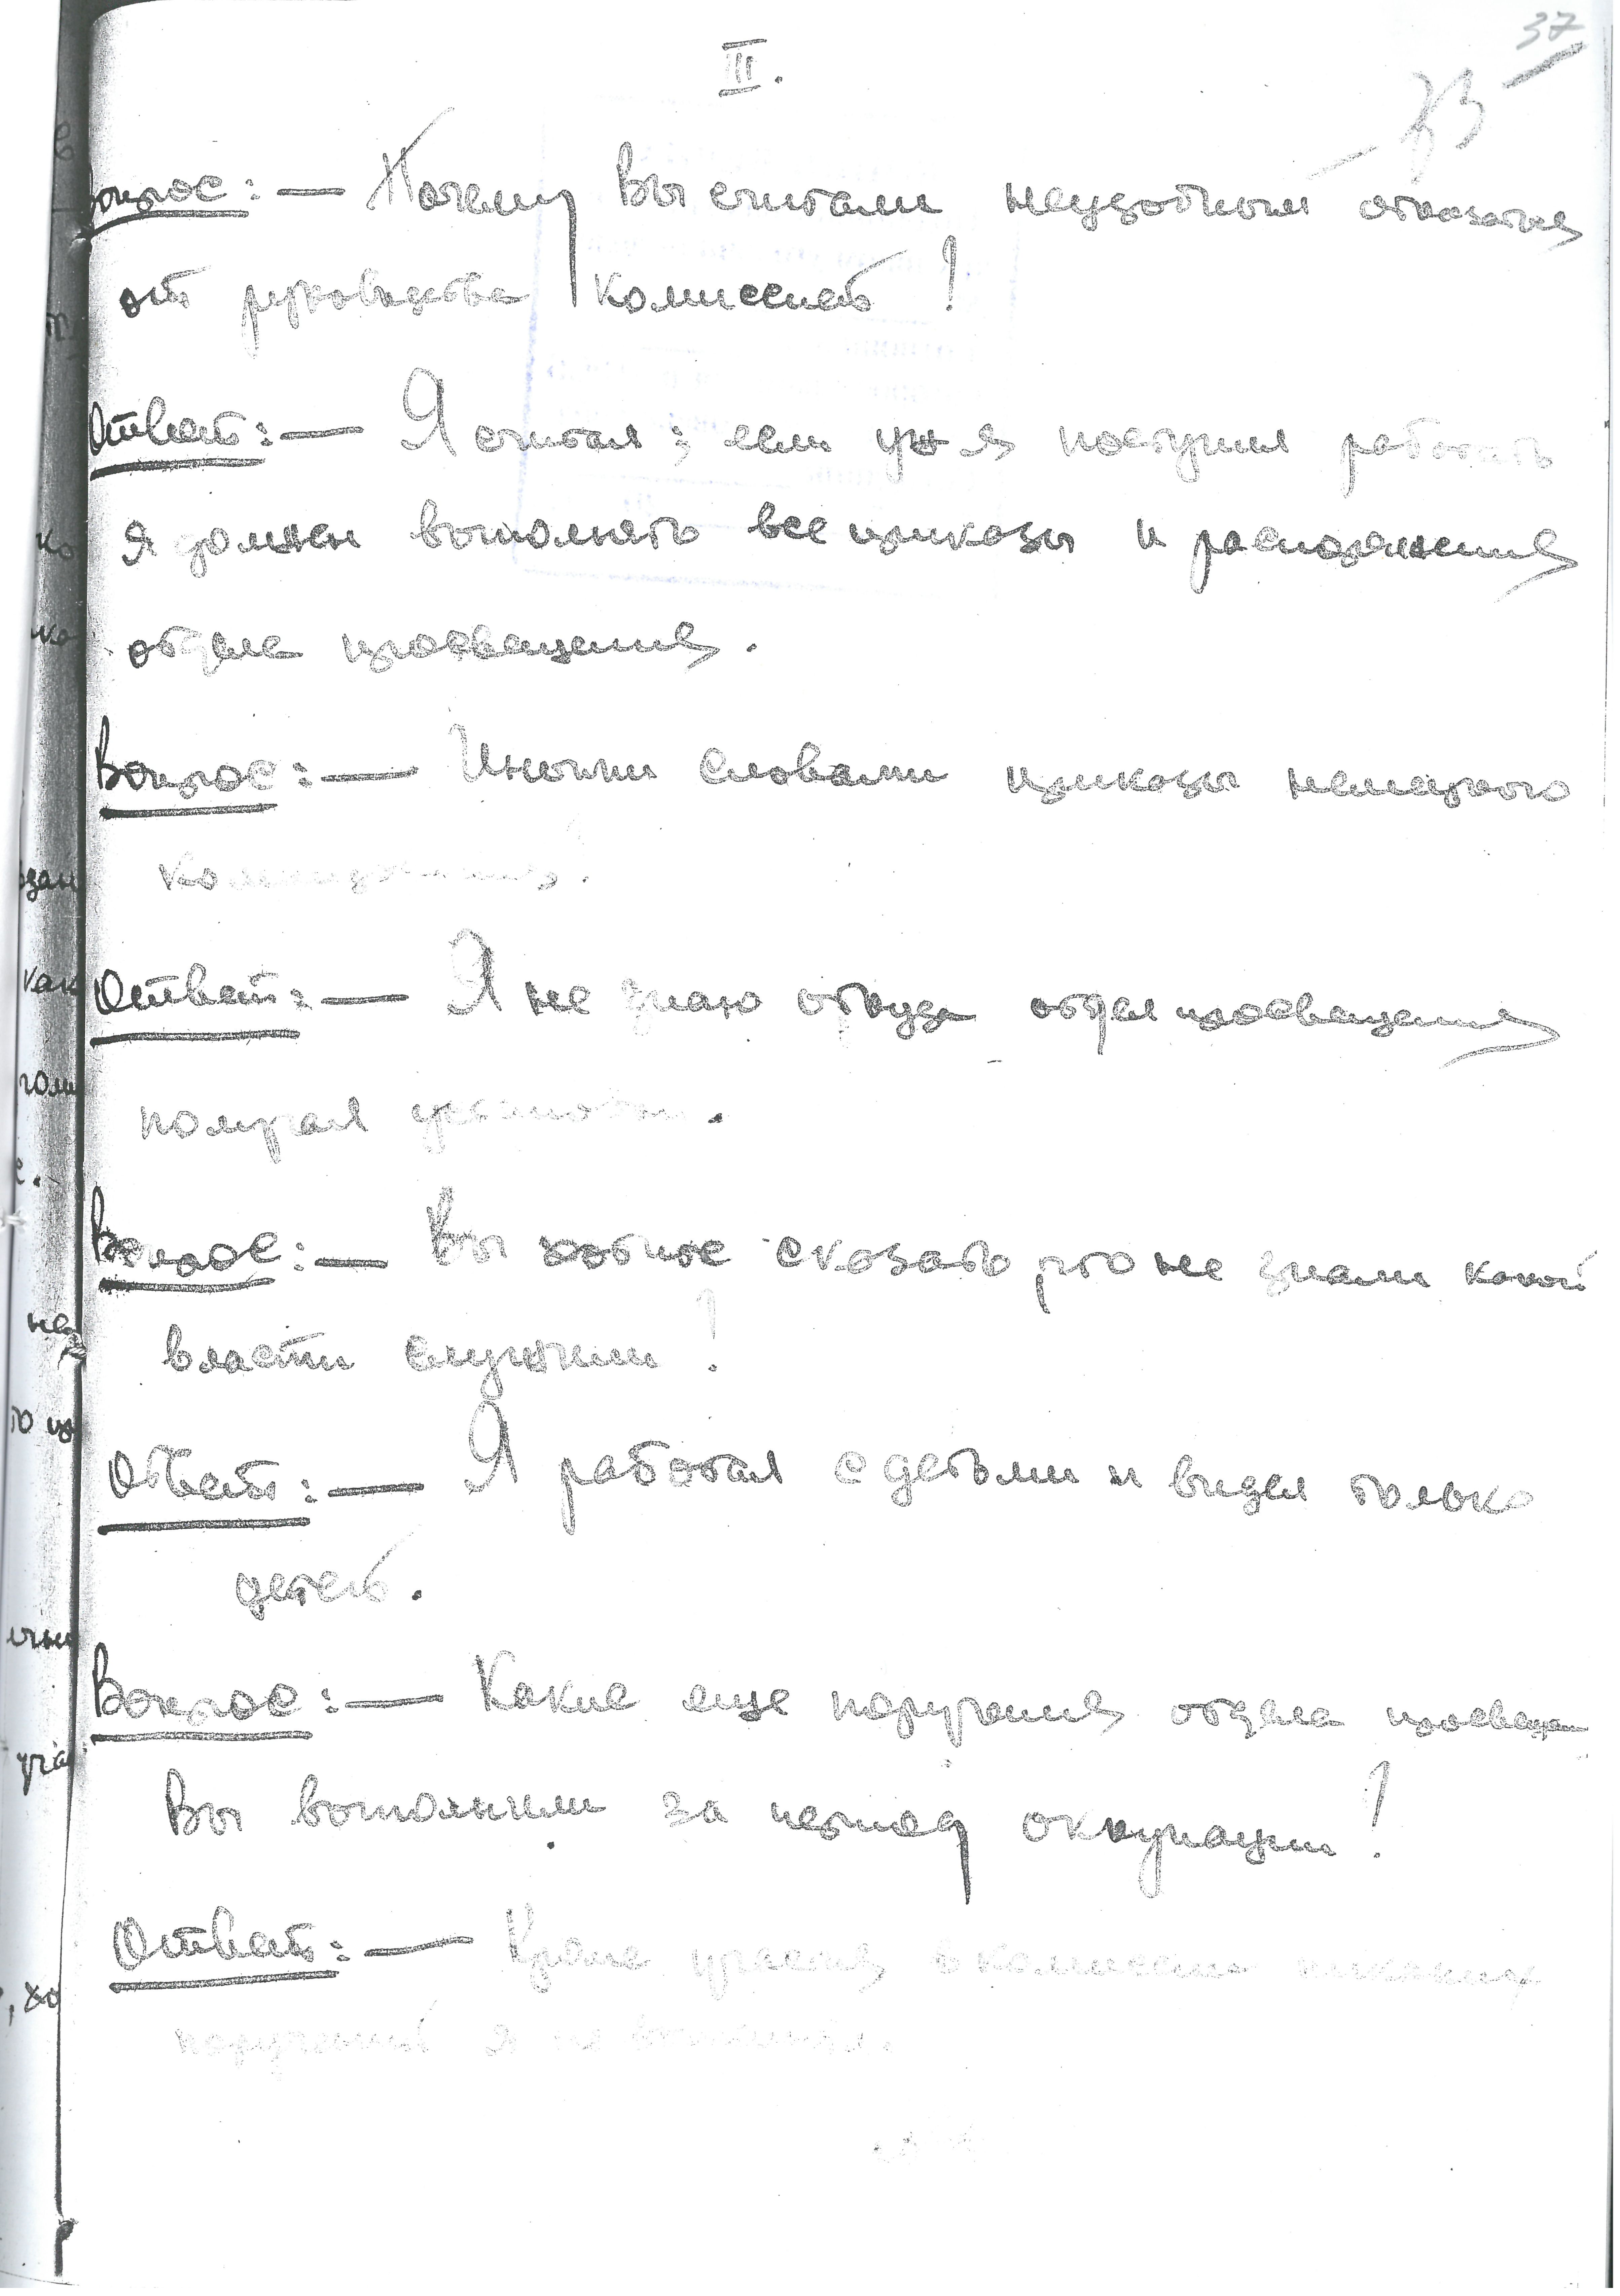 37
III.
Вопрос: — Почему Вы считали неудобным отказаться
от руководства комиссией?
Ответ: — Я считал; если уж я поступил работать
я должен выполнять все приказы и распоряжения
отдела просвещения.
Вопрос: — Иными словами приказы немецкого
командования.
Ответ: — Я не знаю откуда отдел просвещения
получал установки.
Вопрос: — Вы хотите сказать, что не знали какой
власти служили?
Ответ: — Я работал с детьми и видел только
детей.
Вопрос: — Какие еще поручения отдела просвещен
Вы выполнили за период оккупации?
Ответ: — Кроме участия в комиссии никаких
поручений я не выполнял.